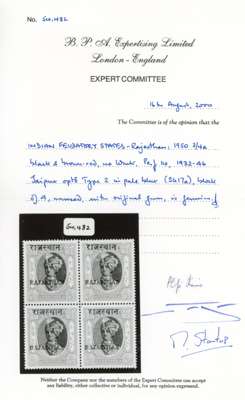 No. 50,482
B. P. A. Expertising Limited
London - England
EXPERT COMMITTEE
16th August, 2000
The Committee is of the opinion that the
INDIAN FEUDATORY STATES - Rajasthan: 1950 3/4a
black & brown-red, no wmk. Perf 14, 1932-46
Jaipur optd Type 2 in pale blue (SG17a), block
of 4, unused, with original gum, is genuine
50,482
राजस्थान राजस्थान
RAJASTHAN RAJASTHAN
राजस्थान राजस्थान
RAJASTHAN RAJASTHAN
Neither the Company nor the members of the Expert Committee can accept
any liability, either collective or individual, for any opinion expressed.